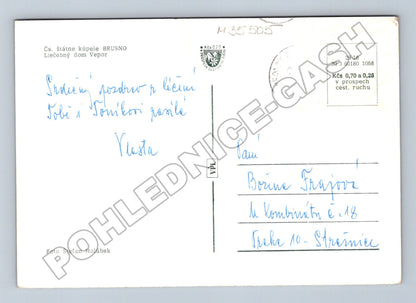 M 35505
Čs. štátne kúpele BRUSNO
Liečebný dom Vepor
Kčs 0,70
Kčs 0,70 a 0,20
v prospech
cest. ruchu
Srdečný pozdrav z léčení
Tobě i Toníkovi posílá
Vlasta
Paní
Božena Frajová
U Kombinátu č. 18
Praha 10 - Strašnice
VPL
Foto Štefan Holúbek
POHLEDNICE-GASH